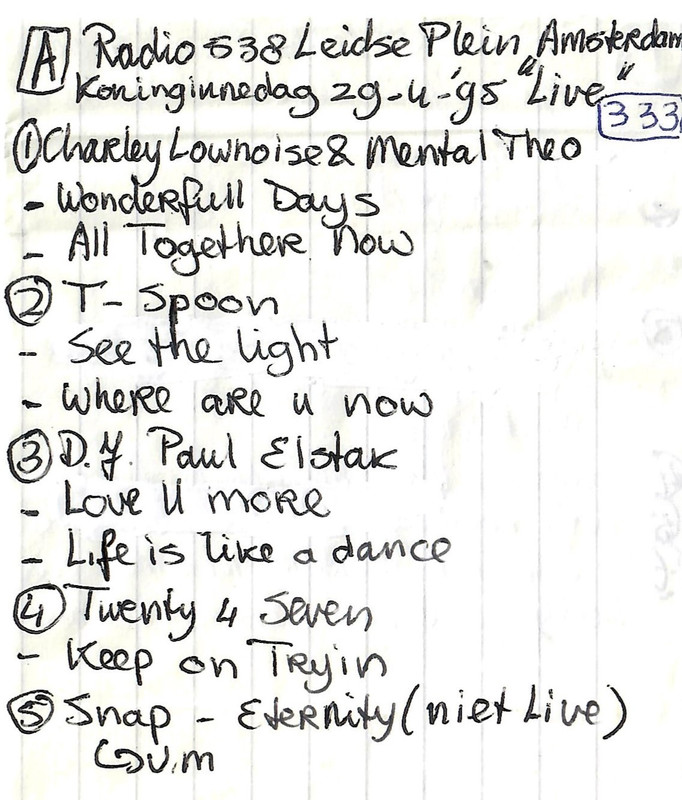 A Radio 538 Leidse Plein Amsterdam
Koninginnedag 29-4-'95 "Live"
333
① Charley Lownoise & Mental Theo
- Wonderfull Days
- All Together Now
② T-Spoon
- See the light
- Where are u now
③ D.J. Paul Elstak
- Love U more
- Life is like a dance
④ Twenty 4 Seven
- Keep on Tryin
⑤ Snap - Eternity (niet Live)
↪ v.m